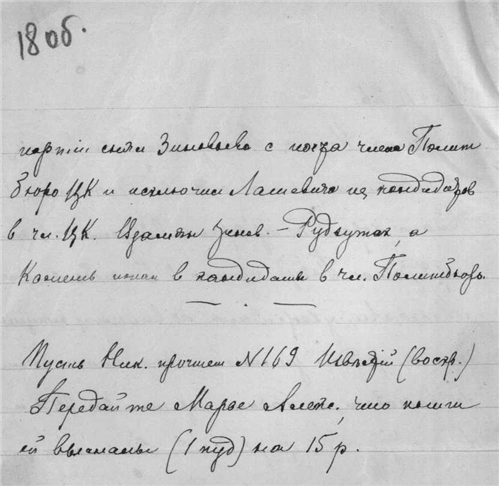 180б.
партiи сняли Зиновьева с поста члена Полит
бюро ЦК и исключили Лашевича из кандидатов
в чл. ЦК. Рудзутак, а
Каменев попал в кандидаты в чл. Политбюро.
Пусть Ник. прочтет №169 Известiй (воскр.)
Передайте Марье Алекс., что книги
ей высланы (1 пуд) на 15 р.